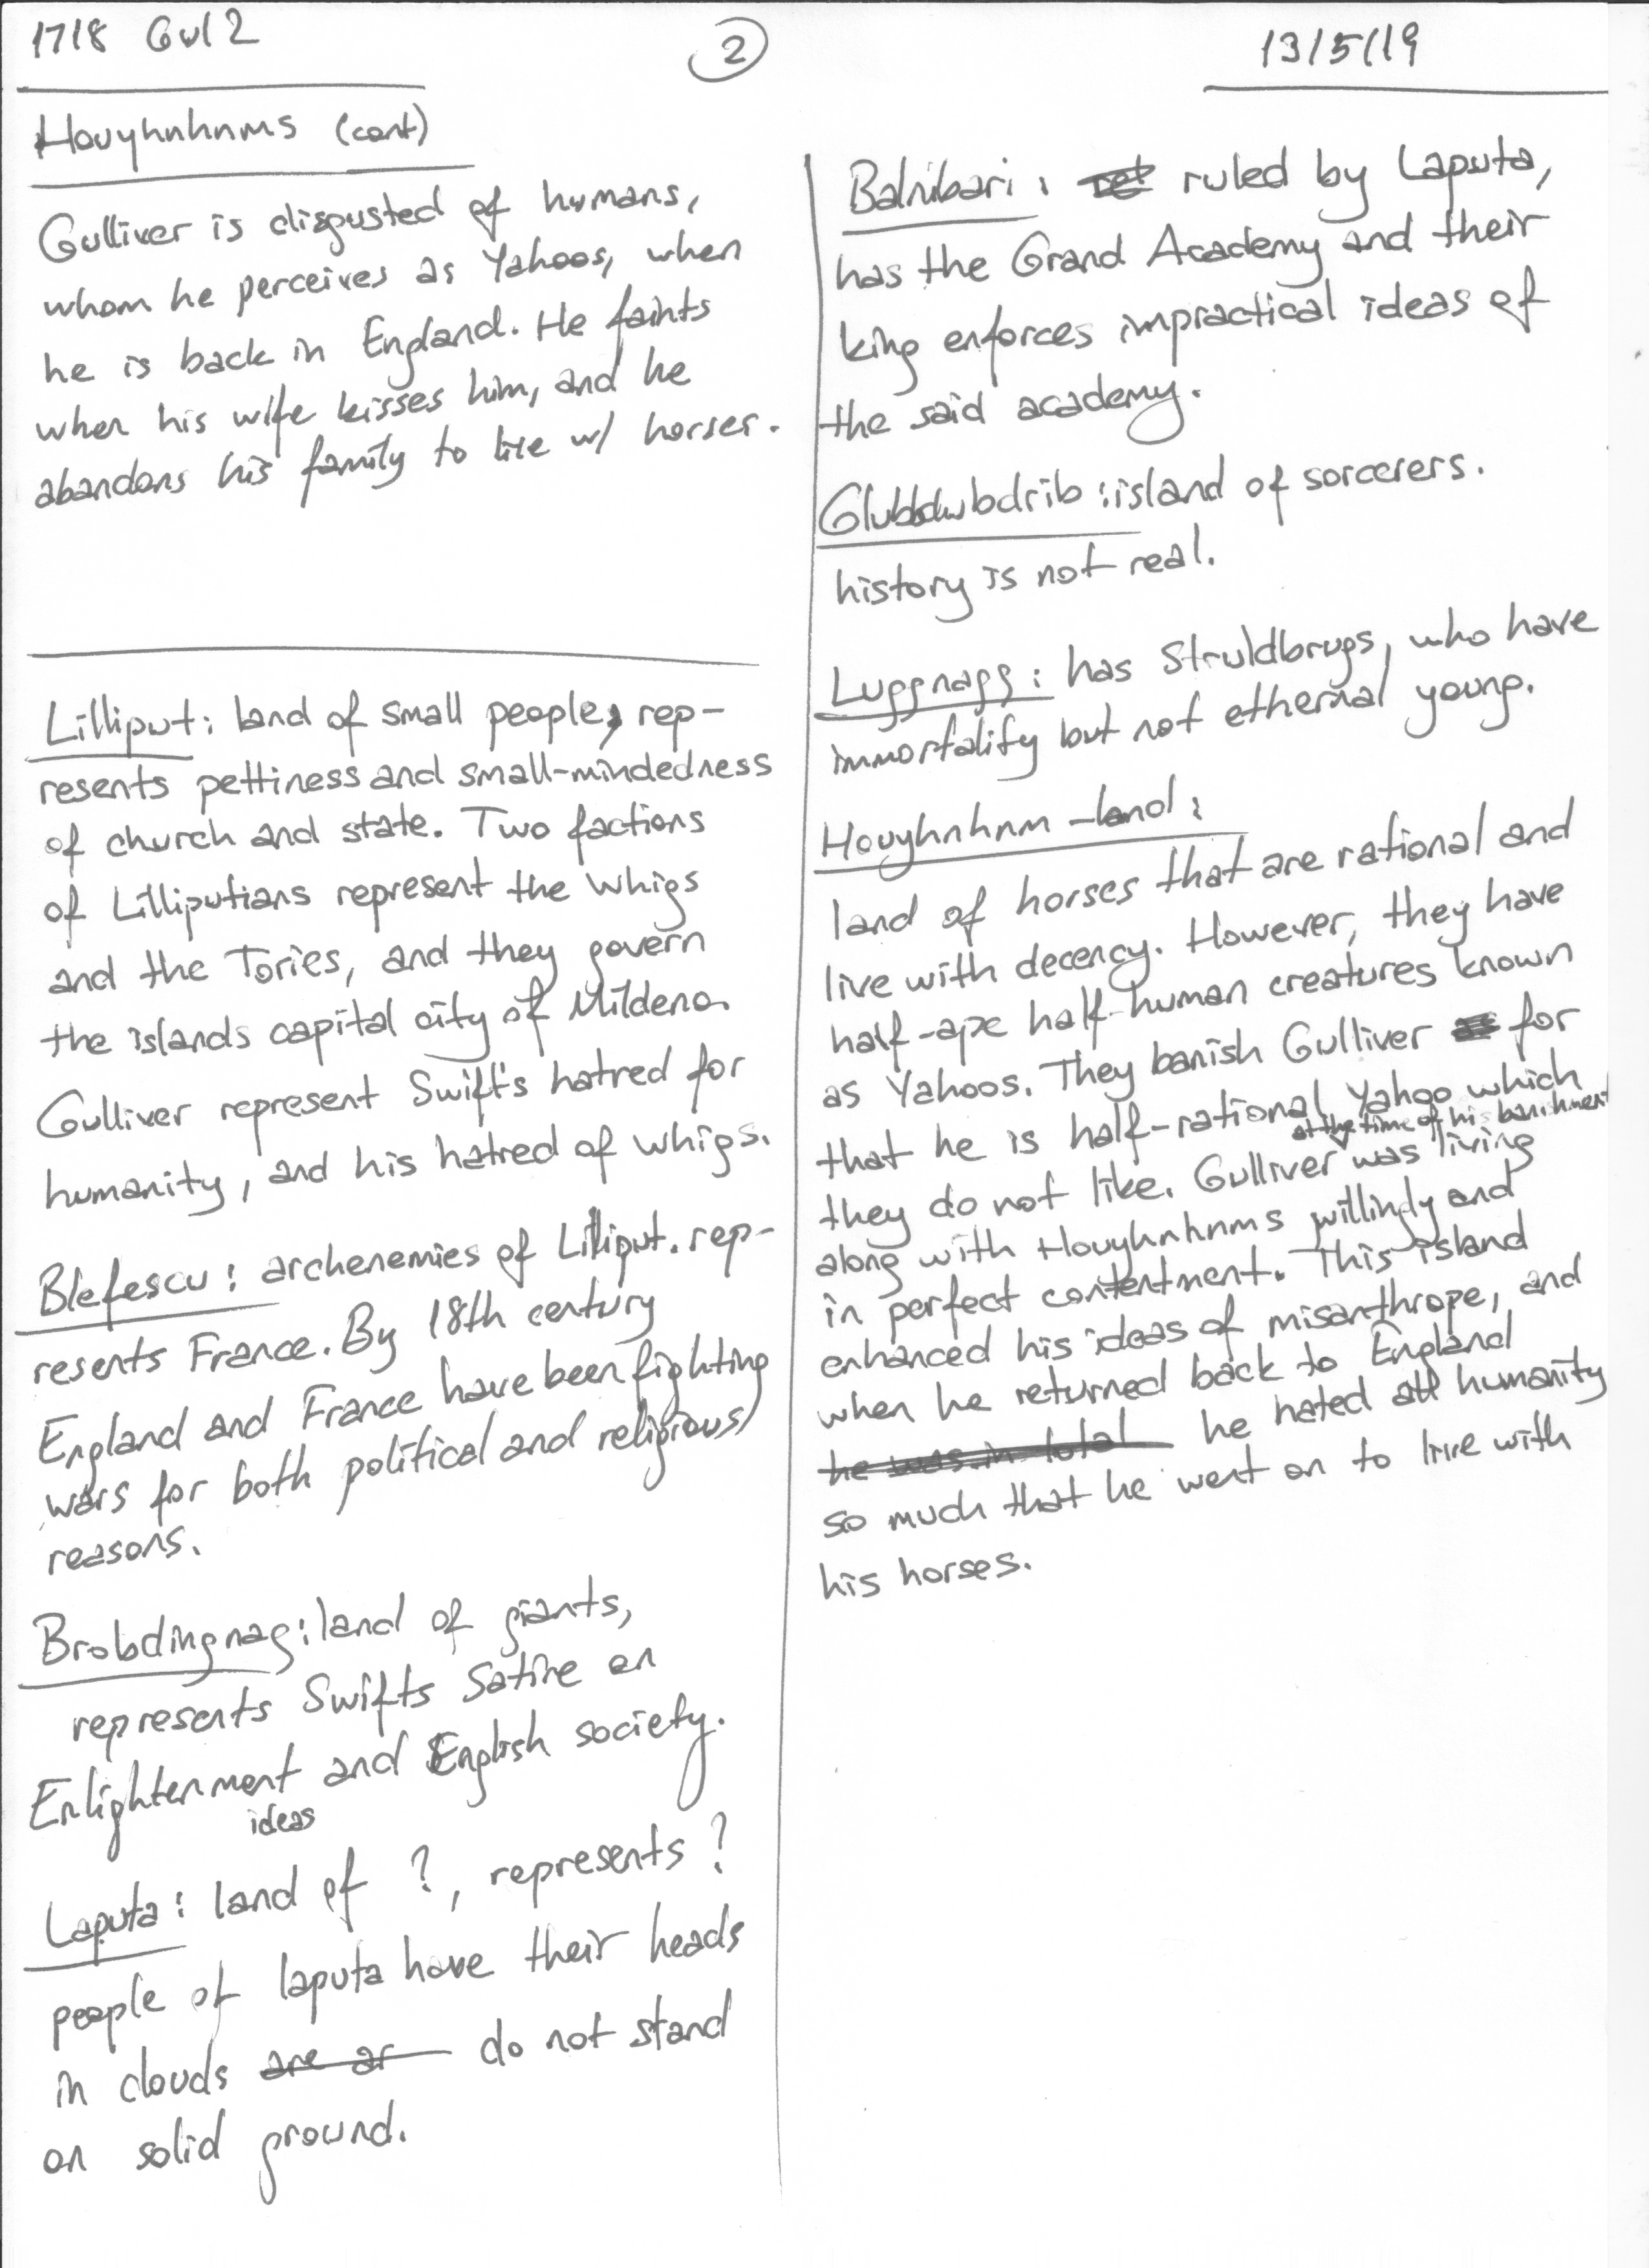 1718 Gul 2
2
13/5/19
Houyhnhnms (cont)
Gulliver is disgusted of humans,
whom he perceives as Yahoos, when
he is back in England. He faints
when his wife kisses him, and he
abandons his family to live w/ horses.
Lilliput: land of small people, rep-
resents pettiness and small-mindedness
of church and state. Two factions
of Lilliputians represent the Whigs
and the Tories, and they govern
the islands capital city of Mildeno.
Gulliver represent Swift's hatred for
humanity, and his hatred of whigs.
Blefescu: archenemies of Lilliput. rep-
resents France. By 18th century
England and France have been fighting
wars for both political and religious
reasons.
Brobdingnag: land of giants,
represents Swifts Satire on
Enlightenment and English society.
ideas
Laputa: land of ?, represents ?
people of laputa have their heads
in clouds are ar do not stand
on solid ground.
Balnibari: ruled by Laputa,
has the Grand Academy and their
king enforces impractical ideas of
the said academy.
Glubbdubdrib: island of sorcerers.
history is not real.
Luggnagg: has Struldbrugs, who have
immortality but not ethernal young.
Houyhnhnm-land:
land of horses that are rational and
live with decency. However, they have
half-ape half-human creatures known
as Yahoos. They banish Gulliver for
that he is half-rational Yahoo which
at the time of his banishment
they do not like. Gulliver was living
along with Houyhnhnms willindy and
in perfect contentment. This island
enhanced his ideas of misanthrope, and
when he returned back to England
he was in total he hated all humanity
so much that he went on to live with
his horses.